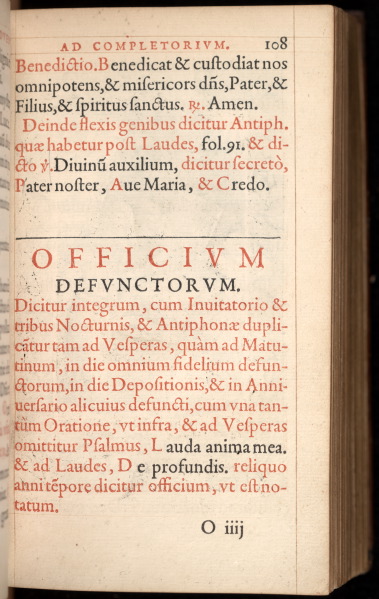 AD COMPLETORIVM. 108
Benedictio. Benedicat & custodiat nos
omnipotens, & misericors dñs, Pater, &
Filius, & spiritus sanctus. ℟. Amen.
Deinde flexis genibus dicitur Antiph.
quæ habetur post Laudes, fol. 91. & di-
cto ℣. Diuinũ auxilium, dicitur secretò,
Pater noster, Aue Maria, & Credo.
OFFICIVM
DEFVNCTORVM.
Dicitur integrum, cum Inuitatorio &
tribus Nocturnis, & Antiphonæ dupli-
cãtur tam ad Vesperas, quàm ad Matu-
tinum, in die omnium fidelium defun-
ctorum, in die Depositionis, & in Anni-
uersario alicuius defuncti, cum vna tan-
tùm Oratione, vt infra, & ad Vesperas
omittitur Psalmus, L auda anima mea.
& ad Laudes, D e profundis. reliquo
anni tẽpore dicitur officium, vt est no-
tatum.
O iiij